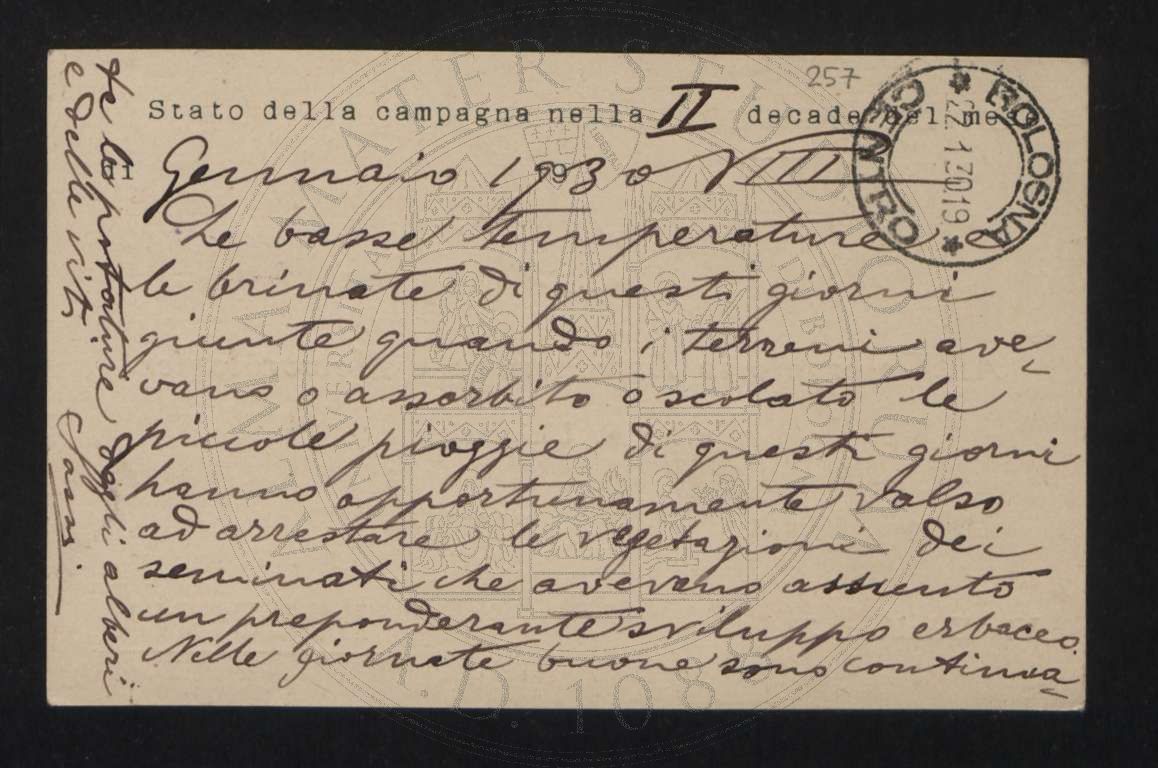 257
Stato della campagna nella II decade del mese
di Gennaio 1930 VIII
Le basse temperature e
le brinate di questi giorni
giunte quando i terreni ave-
vano o assorbito o scolato le
piccole pioggie di questi giorni
hanno opportunamente valso
ad arrestare le vegetazioni dei
seminati che avevano assunto
un preponderante sviluppo erbaceo.
Nelle giornate buone sono continua-
te le potature degli alberi
e delle viti
BOLOGNA CENTRO
22.1.30 19
ALMA MATER STUDIORUM
A.D. 1088